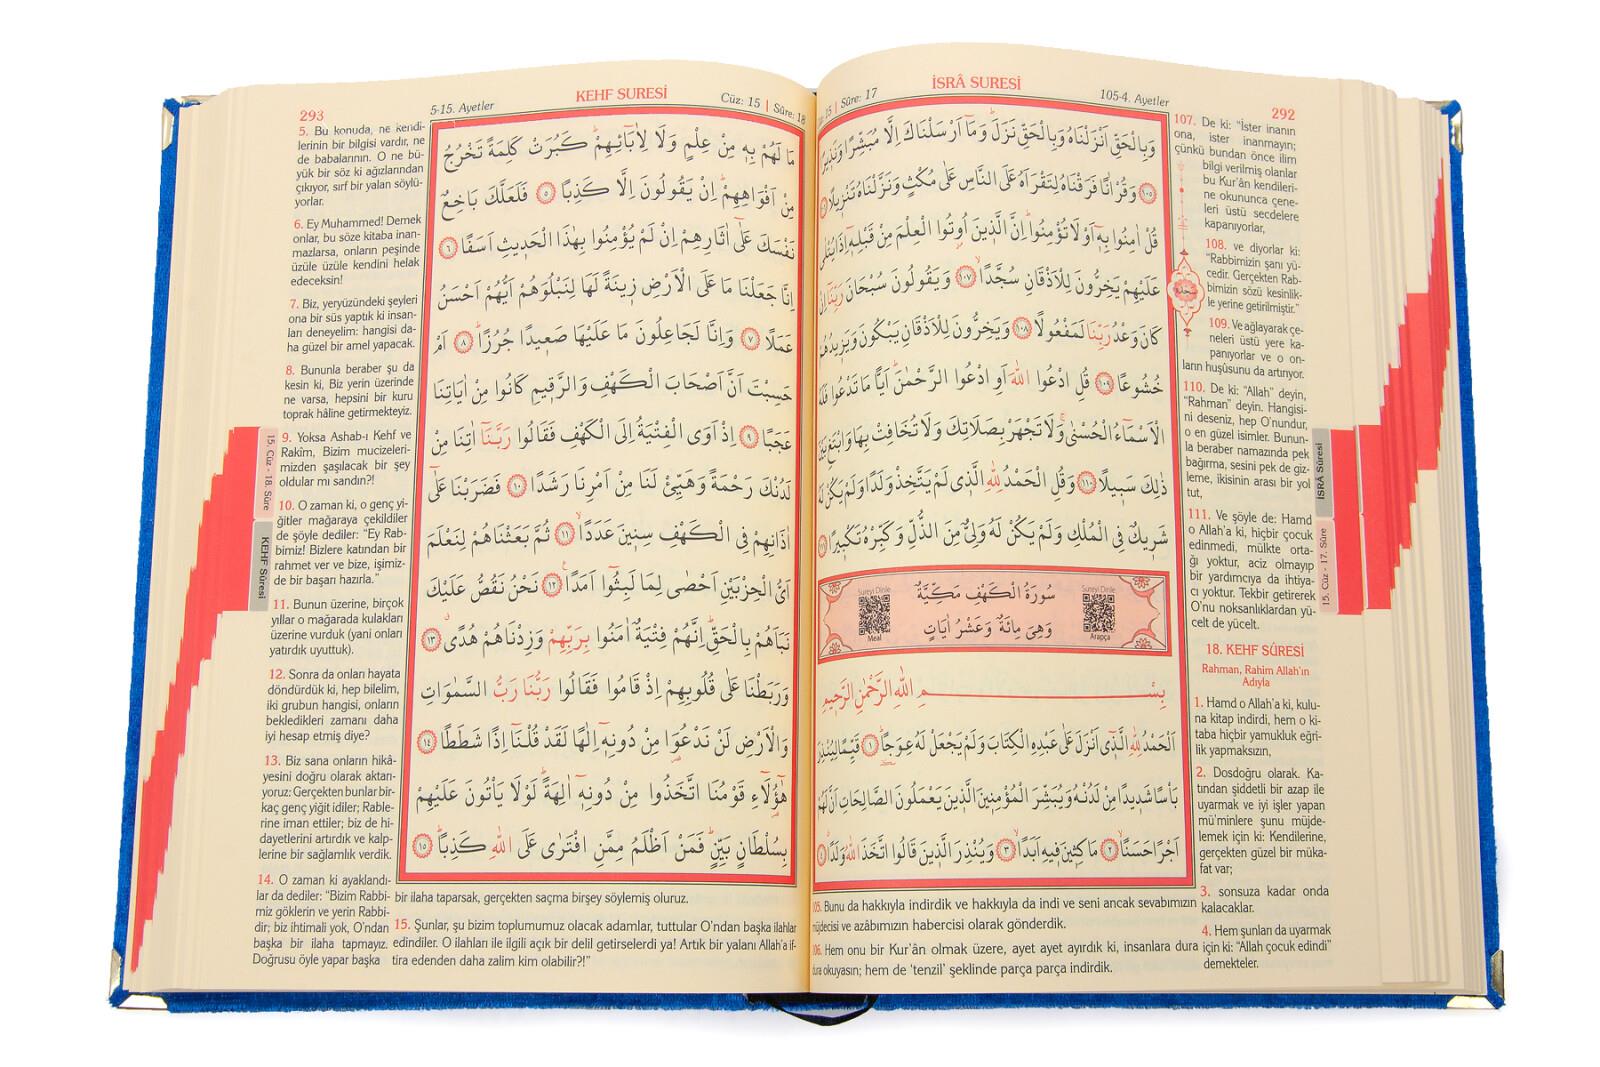 105-4. Ayetler
İSRÂ SURESİ
Sûre: 17
292
وَبِالْحَقِّ اَنْزَلْنَاهُ وَبِالْحَقِّ نَزَلَ وَمَٓا اَرْسَلْنَاكَ اِلَّا مُبَشِّرًا وَنَذِيرًا
١٠٥ وَقُرْاٰنًا فَرَقْنَاهُ لِتَقْرَاَهُ عَلَى النَّاسِ عَلٰى مُكْثٍ وَنَزَّلْنَاهُ تَنْزِيلًا
قُلْ اٰمِنُوا بِهٖٓ اَوْ لَا تُؤْمِنُوا اِنَّ الَّذِينَ اُو۫تُوا الْعِلْمَ مِنْ قَبْلِهٖٓ اِذَا يُتْلٰى
عَلَيْهِمْ يَخِرُّونَ لِلْاَذْقَانِ سُجَّدًا ١٠٧ وَيَقُولُونَ سُبْحَانَ رَبِّنَٓا اِنْ
كَانَ وَعْدُ رَبِّنَا لَمَفْعُولًا ١٠٨ وَيَخِرُّونَ لِلْاَذْقَانِ يَبْكُونَ وَيَزِيدُهُمْ
خُشُوعًا ١٠٩ قُلِ ادْعُوا اللّٰهَ اَوِ ادْعُوا الرَّحْمٰنَ اَيًّا مَا تَدْعُوا فَلَهُ
الْاَسْمَٓاءُ الْحُسْنٰى وَلَا تَجْهَرْ بِصَلَاتِكَ وَلَا تُخَافِتْ بِهَا وَابْتَغِ بَيْنَ
ذٰلِكَ سَبِيلًا ١١٠ وَقُلِ الْحَمْدُ لِلّٰهِ الَّذِى لَمْ يَتَّخِذْ وَلَدًا وَلَمْ يَكُنْ لَهُ
شَرِيكٌ فِى الْمُلْكِ وَلَمْ يَكُنْ لَهُ وَلِىٌّ مِنَ الذُّلِّ وَكَبِّرْهُ تَكْبِيرًا ١١١
Sureyi Dinle
Arapça
سُورَةُ الْكَهْفِ مَكِّيَّةٌ
وَهِىَ مِائَةٌ وَعَشْرُ اٰيَاتٍ
Sureyi Dinle
Meal
بِسْمِ اللّٰهِ الرَّحْمٰنِ الرَّحِيمِ
اَلْحَمْدُ لِلّٰهِ الَّذِٓى اَنْزَلَ عَلٰى عَبْدِهِ الْكِتَابَ وَلَمْ يَجْعَلْ لَهُ عِوَجًا ١ قَيِّمًا لِيُنْذِرَ
بَاْسًا شَدِيدًا مِنْ لَدُنْهُ وَيُبَشِّرَ الْمُؤْمِنِينَ الَّذِينَ يَعْمَلُونَ الصَّالِحَاتِ اَنَّ لَهُمْ
اَجْرًا حَسَنًا ٢ مَاكِثِينَ فِيهِ اَبَدًا ٣ وَيُنْذِرَ الَّذِينَ قَالُوا اتَّخَذَ اللّٰهُ وَلَدًا ٤
سجدة
105. Bunu da hakkıyla indirdik ve hakkıyla da indi ve seni ancak sevabımızın
müjdecisi ve azâbımızın habercisi olarak gönderdik.
106. Hem onu bir Kur'ân olmak üzere, ayet ayet ayırdık ki, insanlara dura
dura okuyasın; hem de 'tenzil' şeklinde parça parça indirdik.
107. De ki: "İster inanın
ona, ister inanmayın;
çünkü bundan önce ilim
bilgi verilmiş olanlar
bu Kur'ân kendileri-
ne okununca çene-
leri üstü secdelere
kapanıyorlar,
108. ve diyorlar ki:
"Rabbimizin şanı yü-
cedir. Gerçekten Rab-
bimizin sözü kesinlik-
le yerine getirilmiştir."
109. Ve ağlayarak çe-
neleri üstü yere ka-
panıyorlar ve o on-
ların huşûsunu da artırıyor.
110. De ki: "Allah" deyin,
"Rahman" deyin. Hangisi-
ni deseniz, hep O'nundur,
o en güzel isimler. Bunun-
la beraber namazında pek
bağırma, sesini pek de giz-
leme, ikisinin arası bir yol
tut,
111. Ve şöyle de: Hamd
o Allah'a ki, hiçbir çocuk
edinmedi, mülkte orta-
ğı yoktur, aciz olmayıp
bir yardımcıya da ihtiya-
cı yoktur. Tekbir getirerek
O'nu noksanlıklardan yü-
celt de yücelt.
18. KEHF SÛRESİ
Rahman, Rahim Allah'ın
Adıyla
1. Hamd o Allah'a ki, kulu-
na kitap indirdi, hem o ki-
taba hiçbir yamukluk eğri-
lik yapmaksızın,
2. Dosdoğru olarak. Ka-
tından şiddetli bir azap ile
uyarmak ve iyi işler yapan
mü'minlere şunu müjde-
lemek için ki: Kendilerine,
gerçekten güzel bir müka-
fat var;
3. sonsuza kadar onda
kalacaklar.
4. Hem şunları da uyarmak
için ki: "Allah çocuk edindi"
demekteler.
İSRÂ Sûresi
15. Cüz - 17. Sûre
293
5-15. Ayetler
KEHF SURESİ
Cüz: 15 | Sûre: 18
مَا لَهُمْ بِهٖ مِنْ عِلْمٍ وَلَا لِاٰبَٓائِهِمْ كَبُرَتْ كَلِمَةً تَخْرُجُ
مِنْ اَفْوَاهِهِمْ اِنْ يَقُولُونَ اِلَّا كَذِبًا ٥ فَلَعَلَّكَ بَاخِعٌ
نَفْسَكَ عَلٰٓى اٰثَارِهِمْ اِنْ لَمْ يُؤْمِنُوا بِهٰذَا الْحَدِيثِ اَسَفًا ٦
اِنَّا جَعَلْنَا مَا عَلَى الْاَرْضِ زِينَةً لَهَا لِنَبْلُوَهُمْ اَيُّهُمْ اَحْسَنُ
عَمَلًا ٧ وَاِنَّا لَجَاعِلُونَ مَا عَلَيْهَا صَعِيدًا جُرُزًا ٨ اَمْ
حَسِبْتَ اَنَّ اَصْحَابَ الْكَهْفِ وَالرَّقِيمِ كَانُوا مِنْ اٰيَاتِنَا
عَجَبًا ٩ اِذْ اَوَى الْفِتْيَةُ اِلَى الْكَهْفِ فَقَالُوا رَبَّنَٓا اٰتِنَا مِنْ
لَدُنْكَ رَحْمَةً وَهَيِّئْ لَنَا مِنْ اَمْرِنَا رَشَدًا ١٠ فَضَرَبْنَا عَلٰٓى
اٰذَانِهِمْ فِى الْكَهْفِ سِنِينَ عَدَدًا ١١ ثُمَّ بَعَثْنَاهُمْ لِنَعْلَمَ
اَىُّ الْحِزْبَيْنِ اَحْصٰى لِمَا لَبِثُٓوا اَمَدًا ١٢ نَحْنُ نَقُصُّ عَلَيْكَ
نَبَاَهُمْ بِالْحَقِّ اِنَّهُمْ فِتْيَةٌ اٰمَنُوا بِرَبِّهِمْ وَزِدْنَاهُمْ هُدًى ١٣
وَرَبَطْنَا عَلٰى قُلُوبِهِمْ اِذْ قَامُوا فَقَالُوا رَبُّنَا رَبُّ السَّمٰوَاتِ
وَالْاَرْضِ لَنْ نَدْعُوَا۬ مِنْ دُونِهٖٓ اِلٰهًا لَقَدْ قُلْنَٓا اِذًا شَطَطًا ١٤
هٰٓؤُ۬لَٓاءِ قَوْمُنَا اتَّخَذُوا مِنْ دُونِهٖٓ اٰلِهَةً لَوْلَا يَاْتُونَ عَلَيْهِمْ
بِسُلْطَانٍ بَيِّنٍ فَمَنْ اَظْلَمُ مِمَّنِ افْتَرٰى عَلَى اللّٰهِ كَذِبًا ١٥
5. Bu konuda, ne kendi-
lerinin bir bilgisi vardır, ne
de babalarının. O ne bü-
yük bir söz ki ağızlarından
çıkıyor, sırf bir yalan söylü-
yorlar.
6. Ey Muhammed! Demek
onlar, bu söze kitaba inan-
mazlarsa, onların peşinde
üzüle üzüle kendini helak
edeceksin!
7. Biz, yeryüzündeki şeyleri
ona bir süs yaptık ki insan-
ları deneyelim: hangisi da-
ha güzel bir amel yapacak.
8. Bununla beraber şu da
kesin ki, Biz yerin üzerinde
ne varsa, hepsini bir kuru
toprak hâline getirmekteyiz.
9. Yoksa Ashab-ı Kehf ve
Rakîm, Bizim mucizeleri-
mizden şaşılacak bir şey
oldular mı sandın?!
10. O zaman ki, o genç yi-
ğitler mağaraya çekildiler
de şöyle dediler: "Ey Rab-
bimiz! Bizlere katından bir
rahmet ver ve bize, işimiz-
de bir başarı hazırla."
11. Bunun üzerine, birçok
yıllar o mağarada kulakları
üzerine vurduk (yani onları
yatırdık uyuttuk).
12. Sonra da onları hayata
döndürdük ki, hep bilelim,
iki grubun hangisi, onların
bekledikleri zamanı daha
iyi hesap etmiş diye?
13. Biz sana onların hikâ-
yesini doğru olarak aktarı-
yoruz: Gerçekten bunlar bir-
kaç genç yiğit idiler; Rable-
rine iman ettiler; biz de hi-
dayetlerini artırdık ve kalp-
lerine bir sağlamlık verdik.
14. O zaman ki ayaklandı-
lar da dediler: "Bizim Rabbi-
miz göklerin ve yerin Rabbi-
dir; biz ihtimali yok, O'ndan
başka bir ilaha tapmayız.
Doğrusu öyle yapar başka
bir ilaha taparsak, gerçekten saçma birşey söylemiş oluruz.
15. Şunlar, şu bizim toplumumuz olacak adamlar, tuttular O'ndan başka ilahlar
edindiler. O ilahları ile ilgili açık bir delil getirselerdi ya! Artık bir yalanı Allah'a if-
tira edenden daha zalim kim olabilir?!"
15. Cüz - 18. Sûre
KEHF Sûresi